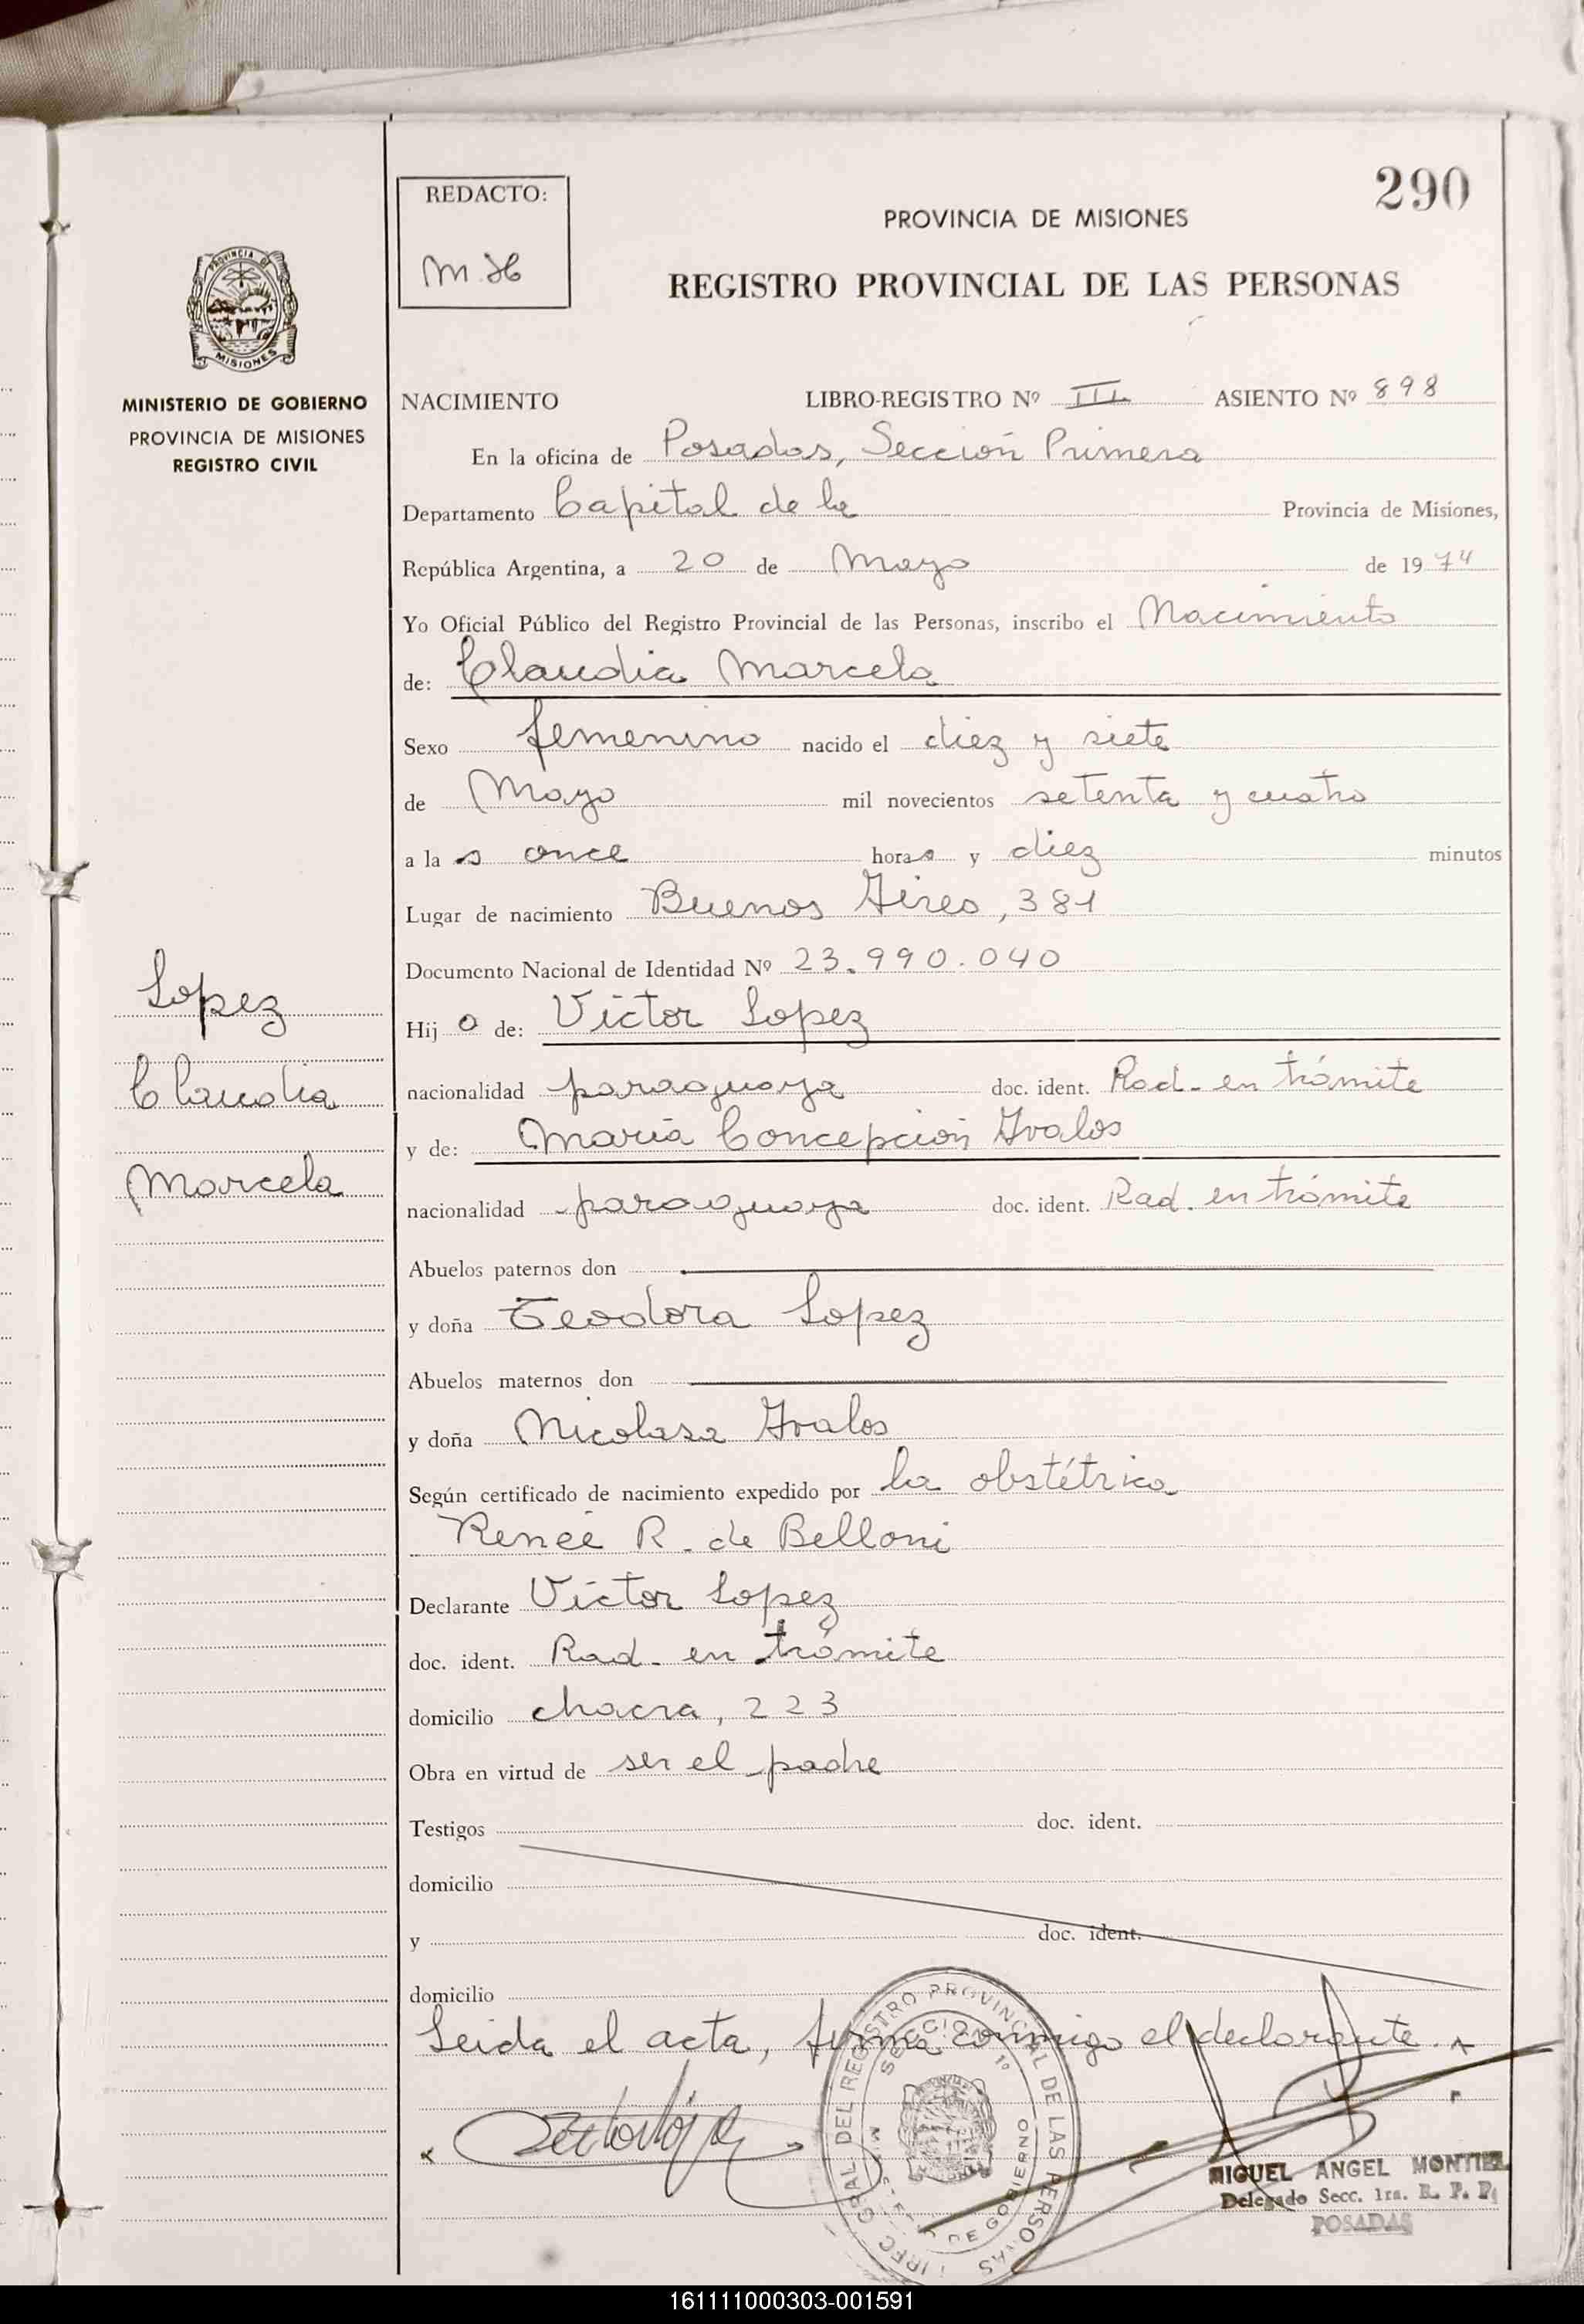 290
REDACTO:
M.H
PROVINCIA DE MISIONES
REGISTRO PROVINCIAL DE LAS PERSONAS
PROVINCIA DE
MISIONES
MINISTERIO DE GOBIERNO
PROVINCIA DE MISIONES
REGISTRO CIVIL
Lopez
Claudia
Marcela
NACIMIENTO LIBRO-REGISTRO Nº III ASIENTO Nº 898
En la oficina de Posadas, Sección Primera
Departamento Capital de la Provincia de Misiones,
República Argentina, a 20 de Mayo de 1974
Yo Oficial Público del Registro Provincial de las Personas, inscribo el Nacimiento
de: Claudia Marcela
Sexo femenino nacido el diez y siete
de Mayo mil novecientos setenta y cuatro
a las once horas y diez minutos
Lugar de nacimiento Buenos Aires, 381
Documento Nacional de Identidad Nº 23.990.040
Hij a de: Víctor Lopez
nacionalidad paraguaya doc. ident. Rad. en trámite
y de: María Concepción Avalos
nacionalidad paraguaya doc. ident. Rad. en trámite
Abuelos paternos don
y doña Teodora Lopez
Abuelos maternos don
y doña Nicolasa Avalos
Según certificado de nacimiento expedido por la obstétrica
Renée R. de Belloni
Declarante Víctor Lopez
doc. ident. Rad. en trámite
domicilio chacra, 223
Obra en virtud de ser el padre
Testigos doc. ident.
domicilio
y doc. ident.
domicilio
Leida el acta, firma conmigo el declarante.
DIREC. GRAL DEL REGISTRO PROVINCIAL DE LAS PERSONAS
SECCION 1º
DE GOBIERNO
MIGUEL ANGEL MONTIEL
Delegado Secc. 1ra. R. P. P.
POSADAS
161111000303-001591